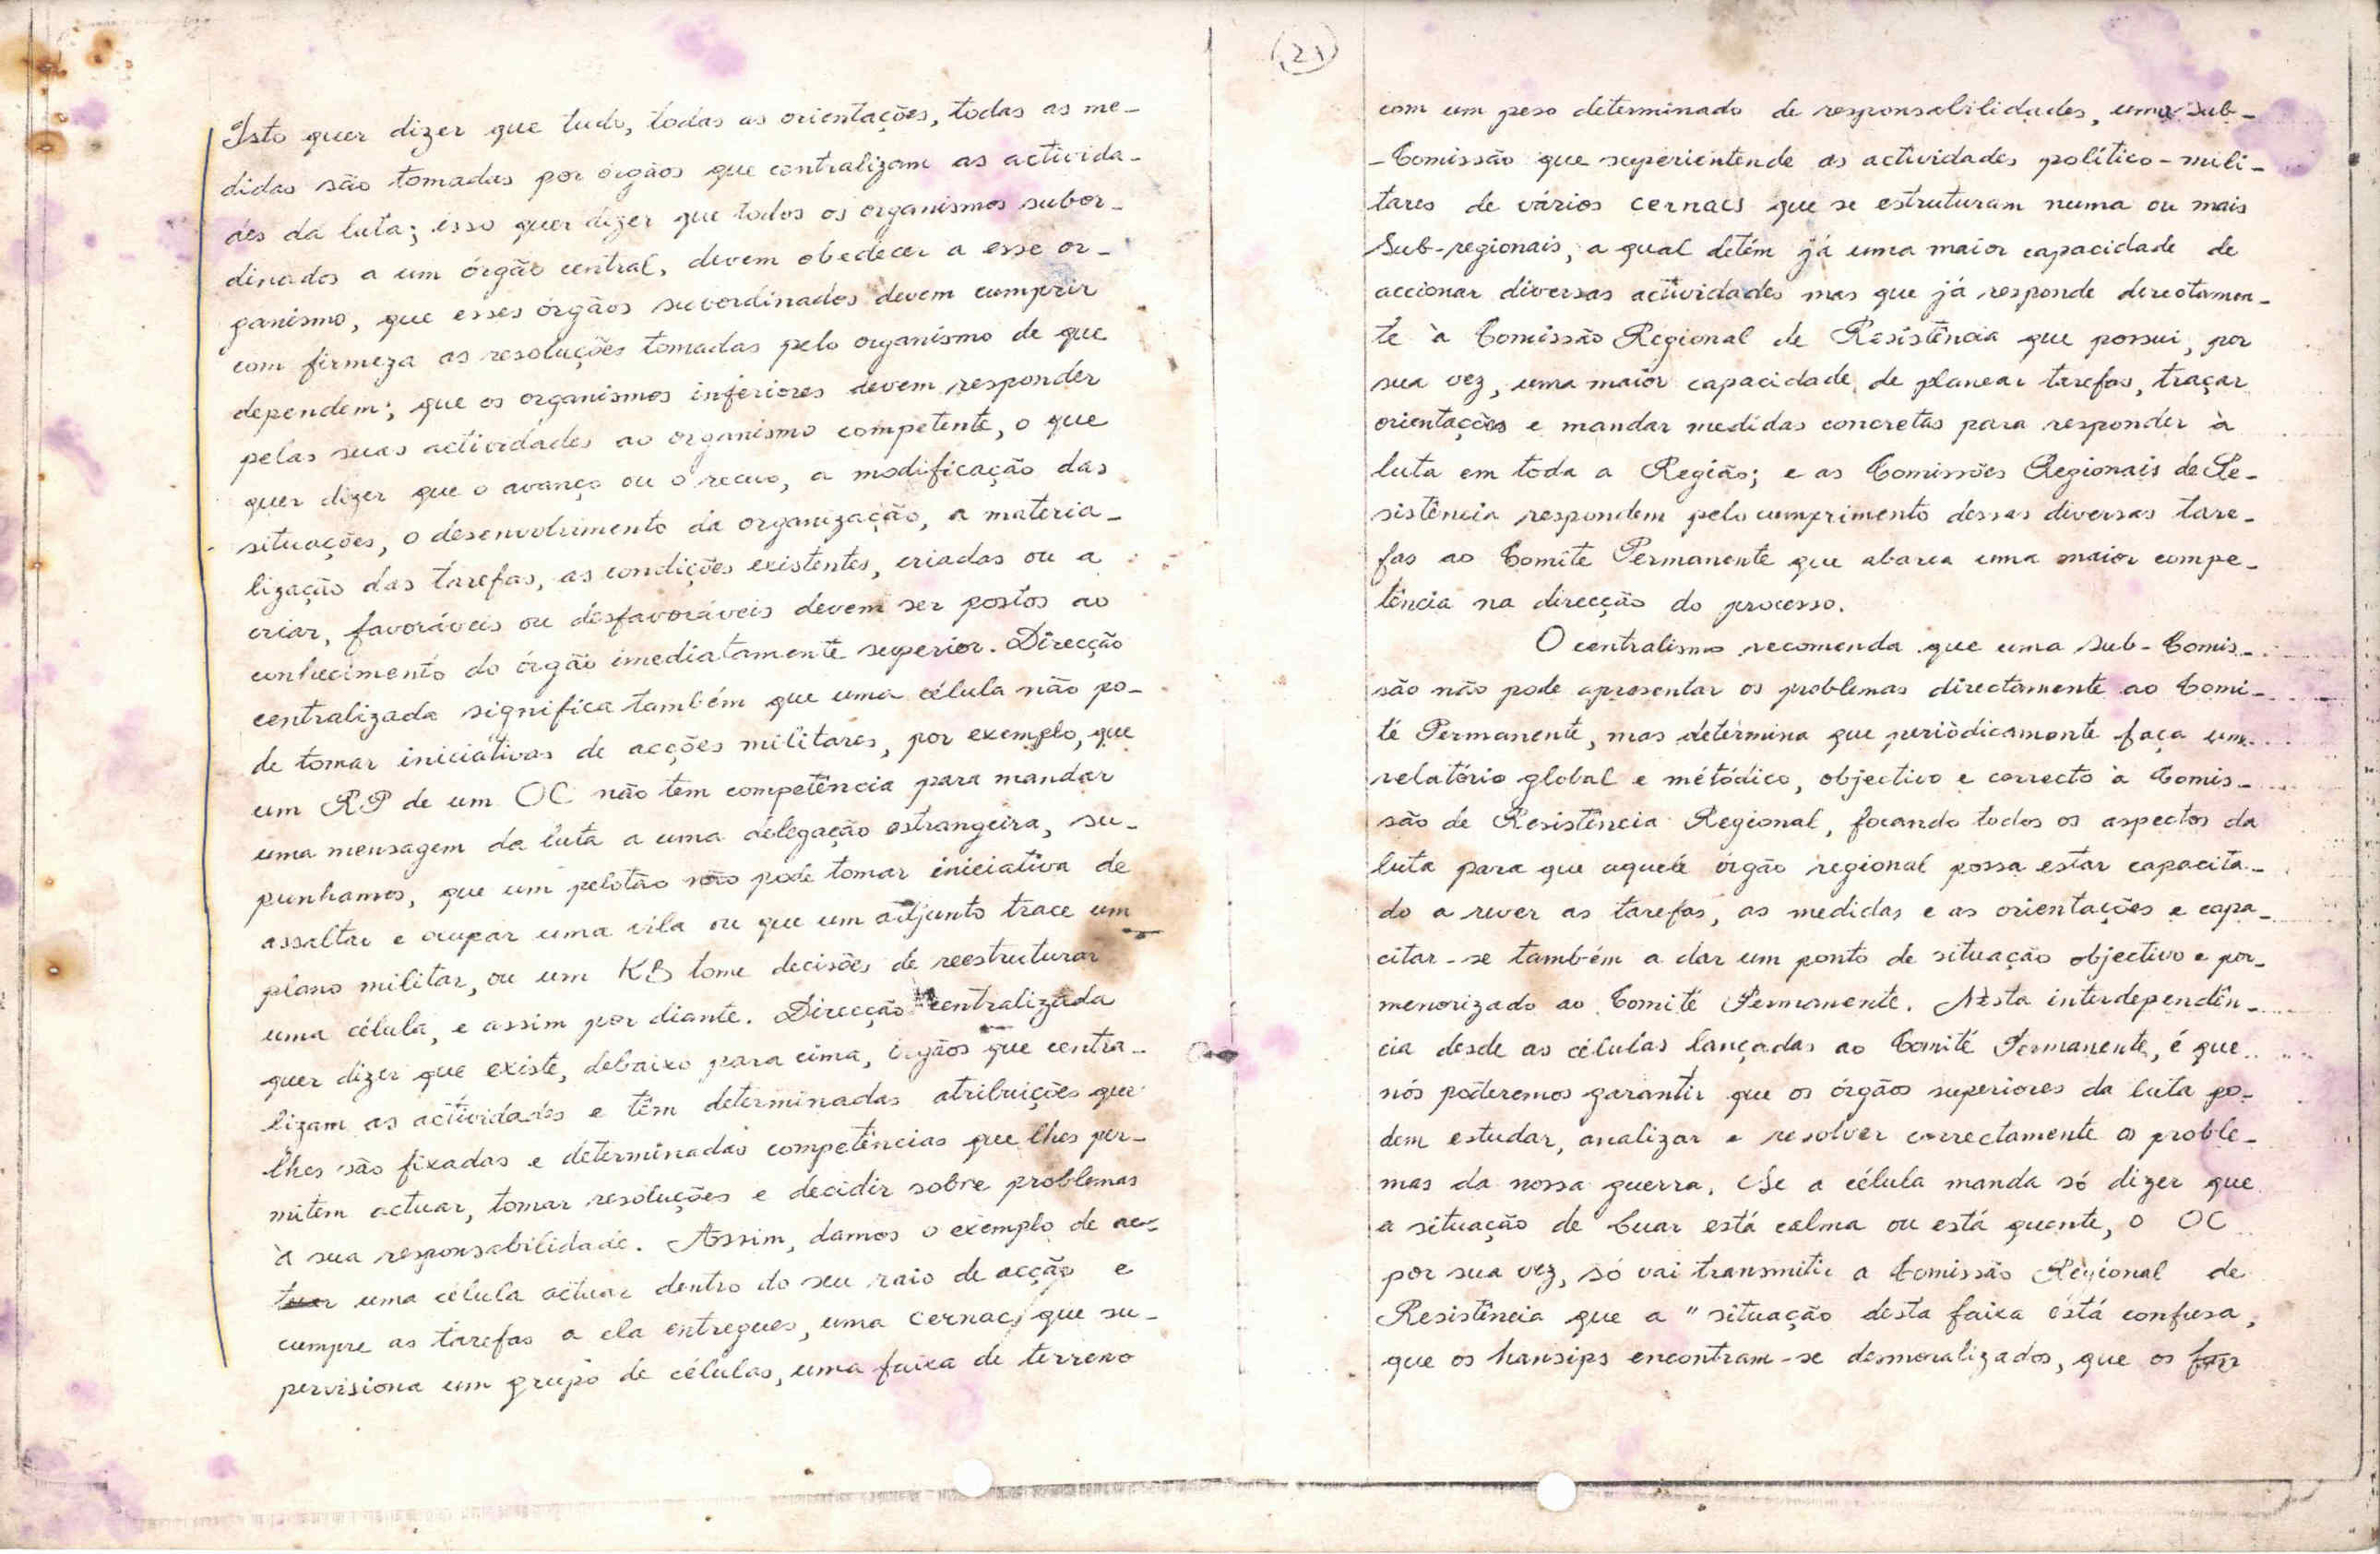 (21)
Isto quer dizer que tudo, todas as orientações, todas as me-
didas são tomadas por órgãos que centralizam as activida-
des da luta; isso quer dizer que todos os organismos subor-
dinados a um órgão central, devem obedecer a esse or-
ganismo, que esses órgãos subordinados devem cumprir
com firmeza as resoluções tomadas pelo organismo de que
dependem; que os organismos inferiores devem responder
pelas suas actividades ao organismo competente, o que
quer dizer que o avanço ou o recuo, a modificação das
situações, o desenvolvimento da organização, a materia-
lização das tarefas, as condições existentes, criadas ou a
criar, favoráveis ou desfavoráveis devem ser postos ao
conhecimento do órgão imediatamente superior. Direcção
centralizada significa também que uma célula não po-
de tomar iniciativas de acções militares, por exemplo, que
um RP de um OC não tem competência para mandar
uma mensagem da luta a uma delegação estrangeira, su-
punhamos, que um pelotão não pode tomar iniciativa de
assaltar e ocupar uma vila ou que um adjunto trace um
plano militar, ou um KB tome decisões de reestruturar
uma célula, e assim por diante. Direcção centralizada
quer dizer que existe, debaixo para cima, órgãos que centra-
lizam as actividades e têm determinadas atribuições que
lhes são fixadas e determinadas competências que lhes per-
mitem actuar, tomar resoluções e decidir sobre problemas
à sua responsabilidade. Assim, damos o exemplo de ac-
tuar uma célula actuar dentro do seu raio de acção e
cumpre as tarefas a ela entregues, uma cernac, que su-
pervisiona um grupo de células, uma faixa de terreno
com um peso determinado de responsabilidades, uma Sub-
-Comissão que superientende as actividades político-mili-
tares de vários cernacs que se estruturam numa ou mais
Sub-regionais, a qual detém já uma maior capacidade de
accionar diversas actividades mas que já responde directamen-
te à Comissão Regional de Resistência que possui, por
sua vez, uma maior capacidade de planear tarefas, traçar
orientações e mandar medidas concretas para responder à
luta em toda a Região; e as Comissões Regionais de Re-
sistência respondem pelo cumprimento dessas diversas tare-
fas ao Comité Permanente que abarca uma maior compe-
tência na direcção do processo.
O centralismo recomenda que uma Sub-Comis-
são não pode apresentar os problemas directamente ao Comi-
té Permanente, mas determina que periòdicamente faça um
relatório global e métódico, objectivo e correcto à Comis-
são de Resistência Regional, focando todos os aspectos da
luta para que aquele órgão regional possa estar capacita-
do a rever as tarefas, as medidas e as orientações e capa-
citar-se também a dar um ponto de situação objectivo e por-
menorizado ao Comité Permanente. Nesta interdependên-
cia desde as células lançadas ao Comité Permanente, é que
nós poderemos garantir que os órgãos superiores da luta po-
dem estudar, analizar e resolver correctamente os proble-
mas da nossa guerra. Se a célula manda só dizer que
a situação de Cuar está calma ou está quente, o OC
por sua vez, só vai transmitir a Comissão Regional de
Resistência que a "situação desta faixa está confusa,
que os hansips encontram-se desmoralizados, que os